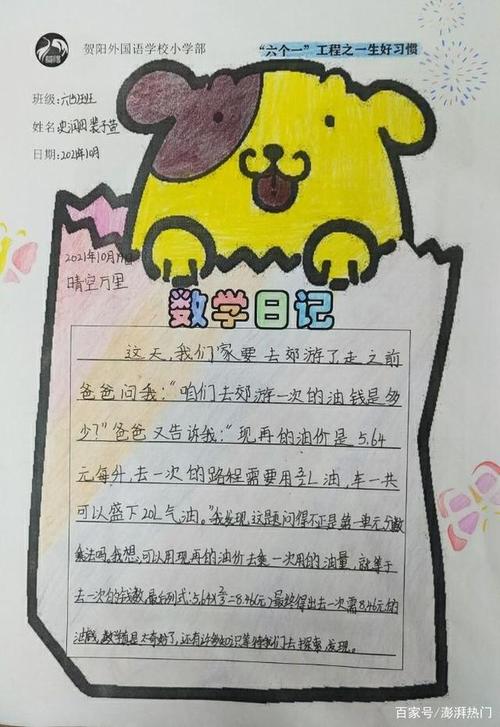 贺阳外国语学校小学部
“六个一”工程之一生好习惯
班级:六(4)班
姓名
日期:2021年10月
2021年10月
晴空万里
数学日记
这天,我们家要去郊游了走之前
爸爸问我:“咱们去郊游一次的油钱是多
少?”爸爸又告诉我:“现再的油价是5.64
元每升,去一次的路程需要用L油,车一共
可以盛下20L气油。”我发现,这题问得不正是第一单元分数
乘法吗。我想,可以用现再的油价去乘一次用的油量,就等于
去一次的钱数,最后列式:5.64×=8.46元,最终得出去一次需8.46元的
油钱,数学真是太奇妙了,还有许多知识等待我们去探索,发现。
百家号/澎湃热门